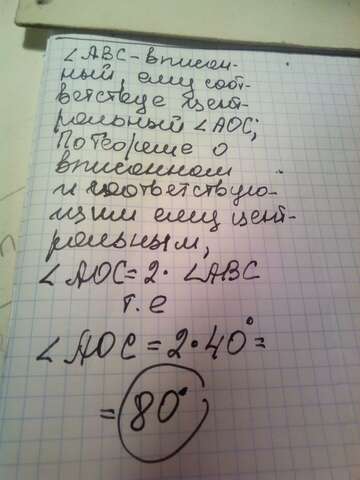 ∠ABC - вписан-
ный, ему соот-
ветствуе цент-
ральный ∠AOC;
По теореме о
вписанном
и соответствую-
щим ему цент-
ральным,
∠AOC = 2 · ∠ABC
т.е
∠AOC = 2 · 40° =
= 80°